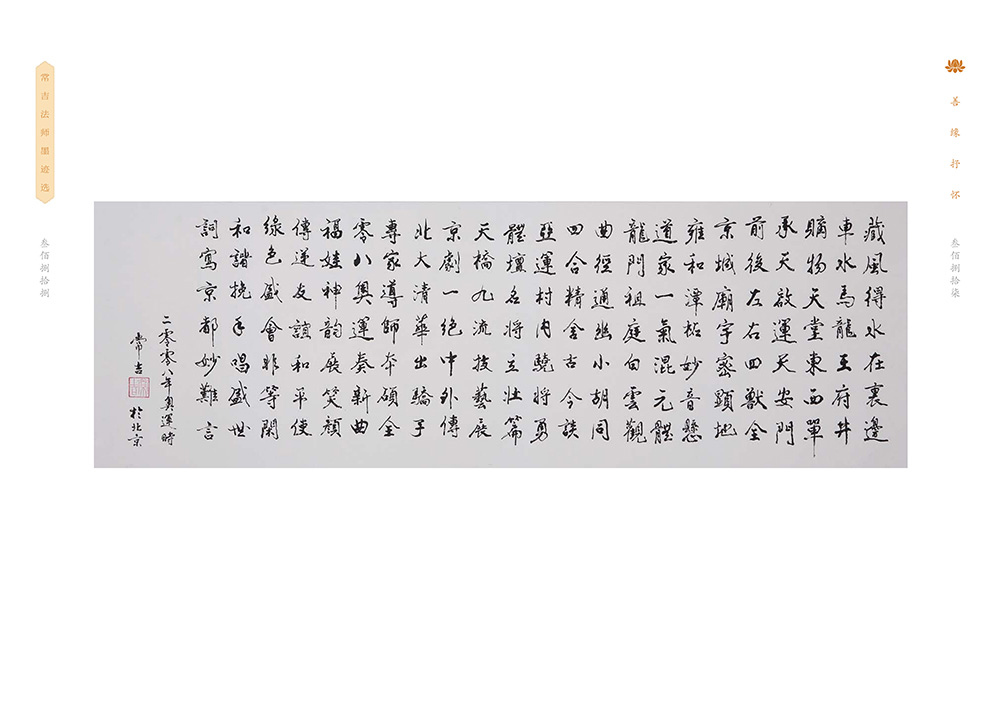 善缘抒怀
叁佰捌拾柒
藏風得水在裏邊
車水馬龍王府井
購物天堂東西單
承天啟運天安門
前後左右四獸全
京城廟宇密顯地
雍和潭柘妙音懸
道家一氣混元體
龍門祖庭白雲觀
曲徑通幽小胡同
四合精舍古今談
亞運村内驍將勇
體壇名將立壯篇
天橋九流技藝展
京劇一绝中外傳
北大清華出驕子
專家導師本碩全
零八奧運奏新曲
福娃神韵展笑顏
傳遞友誼和平使
綠色盛會非等閑
和諧挽手唱盛世
詞寫京都妙難言
二零零八年奧運時
常吉 於北京
常吉法师墨迹选
叁佰捌拾捌